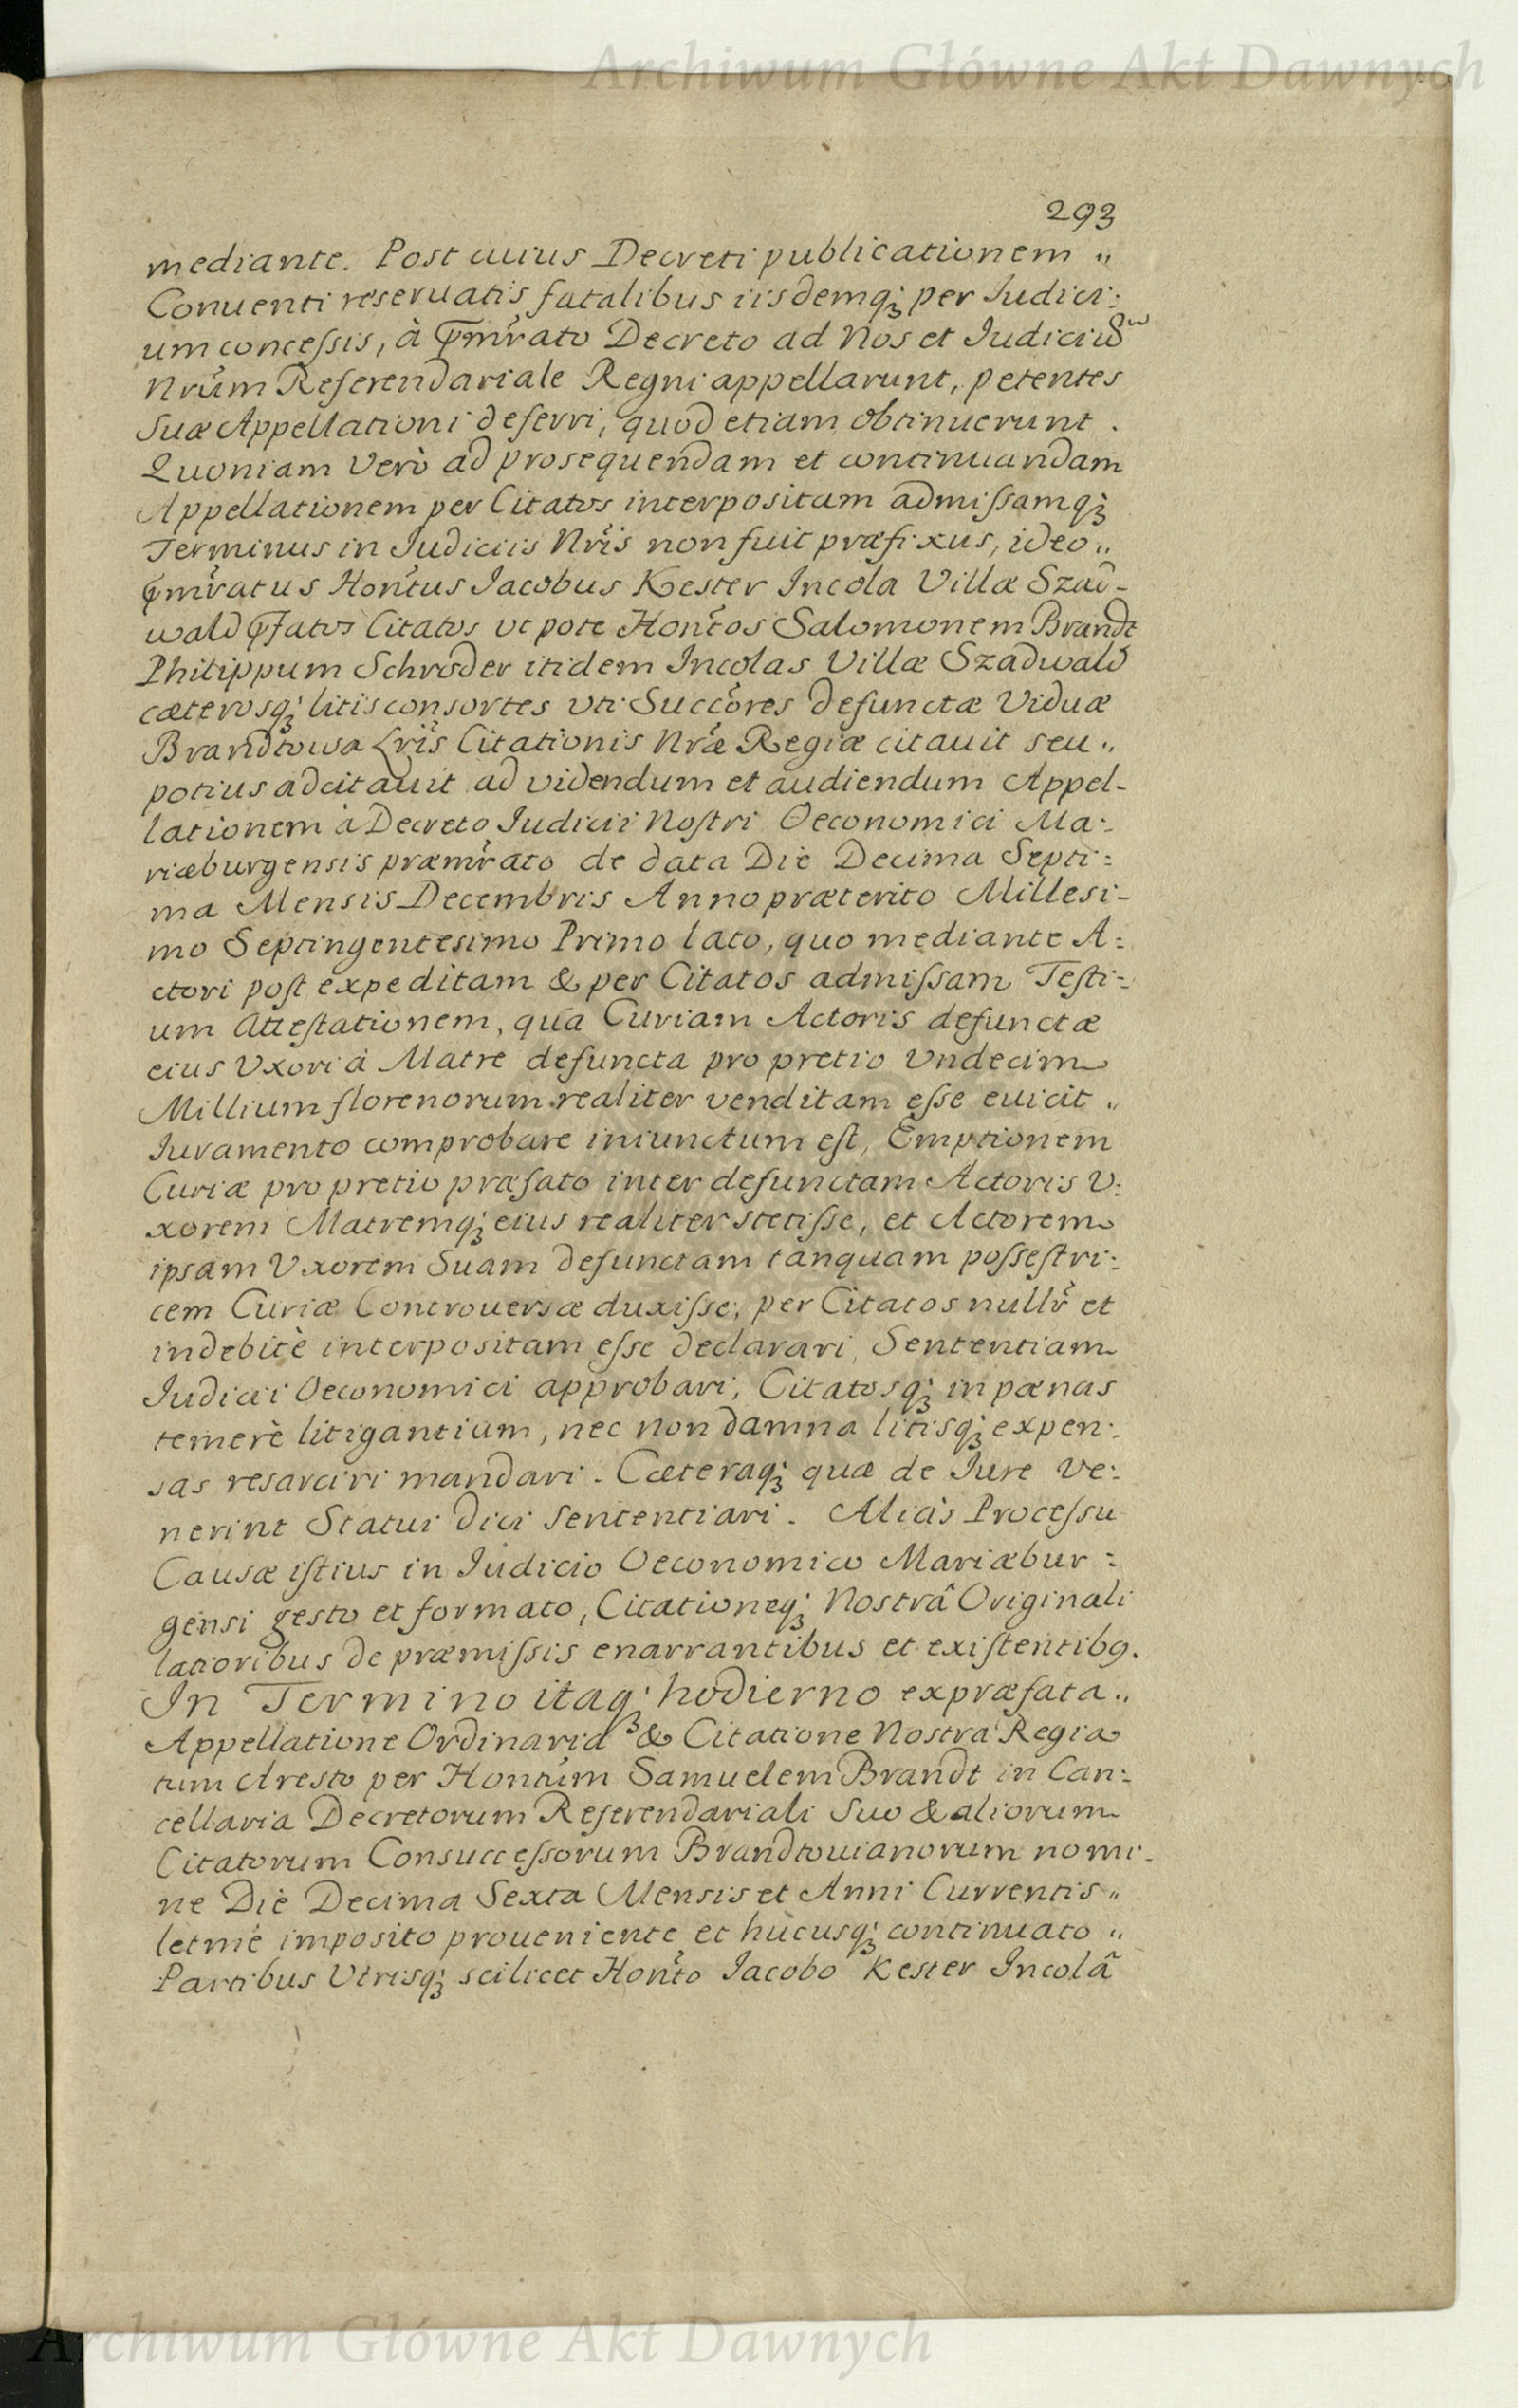 Archiwum Główne Akt Dawnych
293
mediante. Post cuius Decreti publicationem „
Conuenti reseruatis fatalibus iisdemq; per Iudici:
um concessis, à Pmr̃ato Decreto ad Nos et Iudiciũ
Nr̃um Referendariale Regni appellarunt, petentes
Suæ Appellationi deferri, quod etiam obtinuerunt.
Quoniam Verò ad prosequendam et continuandam
Appellationem per Citatos interpositam admissamq;
Terminus in Iudiciis Nr̃is non fuit præfixus, ideo „
Pmr̃atus Hontus Iacobus Kester Incola Villæ Szad-
wald Pfatos Citatos vt pote Hontos Salomonem Brandt
Philippum Schröder itidem Incolas Villæ Szadwald
cæterosq; litis consortes vti Succõres defunctæ Viduæ
Brandtowa Lr̃is Citationis Nr̃æ Regiæ citauit seu „
potius adcitauit ad videndum et audiendum Appel-
lationem à Decreto Iudicii Nostri Oeconomici Ma:
riæburgensis præmr̃ato de data Die Decima Septi:
ma Mensis Decembris Anno præterito Millesi-
mo Septingentesimo Primo lato, quo mediante A:
ctori post expeditam & per Citatos admissam Testi:
um Attestationem, qua Curiam Actoris defunctæ
eius Vxori à Matre defuncta pro pretio Vndecim
Millium florenorum realiter venditam esse euicit „
Iuramento comprobare iniunctum est, Emptionem
Curiæ pro pretio præfato inter defunctam Actoris V:
xorem Matremq; eius realiter stetisse, et Actorem
ipsam Vxorem Suam defunctam tanquam possestri:
cem Curiæ Controuersæ duxisse, per Citatos nullr̃ et
indebitè interpositam esse declarari, Sententiam
Iudicii Oeconomici approbari, Citatosq; in pænas
temerè litigantium, nec non damna litisq; expen:
sas resarciri mandari. Cæteraq; quæ de Iure ve:
nerint Statui dici sententiari. Aliàs Processu
Causæ istius in Iudicio Oeconomico Mariæbur:
gensi gesto et formato, Citationeq; Nostrâ Originali
latioribus de præmissis enarrantibus et existentib9.
In Termino itaq; hodierno ex præfata „
Appellatione Ordinaria & Citatione Nostra Regia
tum Aresto per Hontum Samuelem Brandt in Can:
cellaria Decretorum Referendariali Suo & aliorum
Citatorum Consuccessorum Brandtouianorum nomi-
ne Die Decima Sexta Mensis et Anni Currentis „
letniè imposito proueniente et hucusq; continuato „
Partibus Vtrisq; scilicet Honto Iacobo Kester Incolâ
Archiwum Główne Akt Dawnych